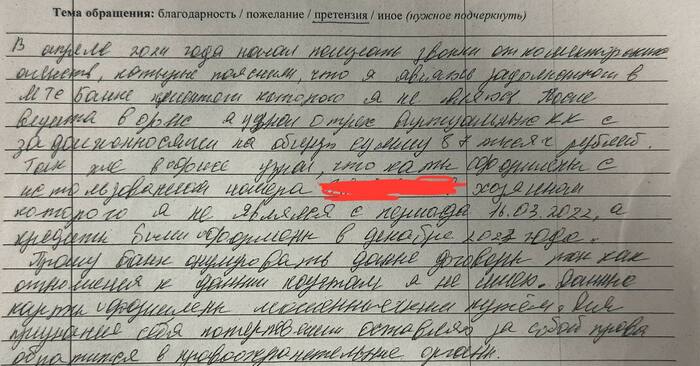 Тема обращения: благодарность / пожелание / претензия / иное (нужное подчеркнуть)
В апреле 2024 года начал получать звонки от коллекторских
агенств, которые пояснили, что я являюсь задолжником в
МТС Банке клиентом которого я не являюсь. После
визита в офис я узнал о трех виртуальных КК с
задолженностями на общую сумму 87 тысяч рублей.
Так же в офисе узнал, что карты оформлены с
использованием номера хозяином
которого я не являлся с периода 16.03.2022, а
кредиты были оформлены в декабре года.
Прошу банк анулировать данные договоры так как
отношения к данным картам я не имею. Данные
карты оформлены мошенническим путём. Для
признания себя потерпевшим оставляю за собой право
обратится в правоохранительные органы.